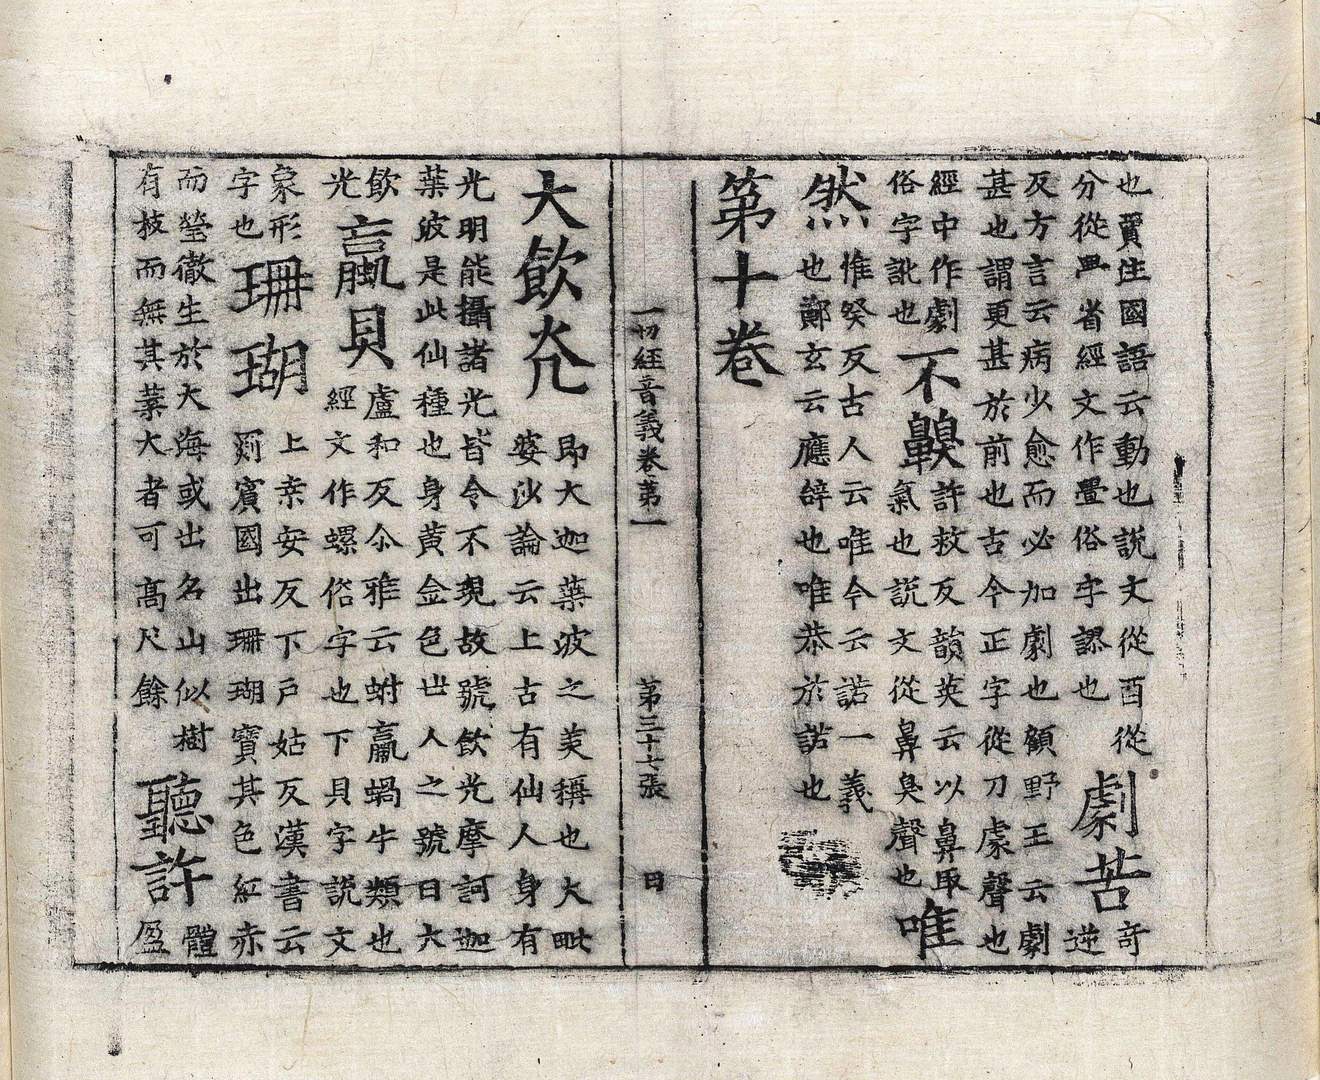 也賈注國語云動也說文從酉從
分從血省經文作舋俗字謬也
劇苦
奇
逆
反方言云病少愈而必加劇也顧野王云劇
甚也謂更甚於前也古今正字從刀豦聲也
經中作劇
俗字訛也
不齅
許救反韻英云以鼻取
氣也說文從鼻臭聲也
唯
然
惟癸反古人云唯今云諾一義
也鄭玄云應辝也唯恭於諾也
第十卷
一切經音義卷第一
第三十七張
日
大飲光
即大迦葉波之美稱也大毗
婆沙論云上古有仙人身有
光明能攝諸光皆令不現故號飲光摩訶迦
葉波是此仙種也身黃金色世人之號曰大
飲
光
蠃貝
盧和反尒雅云蚹蠃蝸牛類也
經文作螺俗字也下貝字說文
象形
字也
珊瑚
上桒安反下戶姑反漢書云
罽賓國出珊瑚寶其色紅赤
而瑩徹生於大海或出名山似樹
有枝而無其葉大者可高尺餘
聽許
體
盈